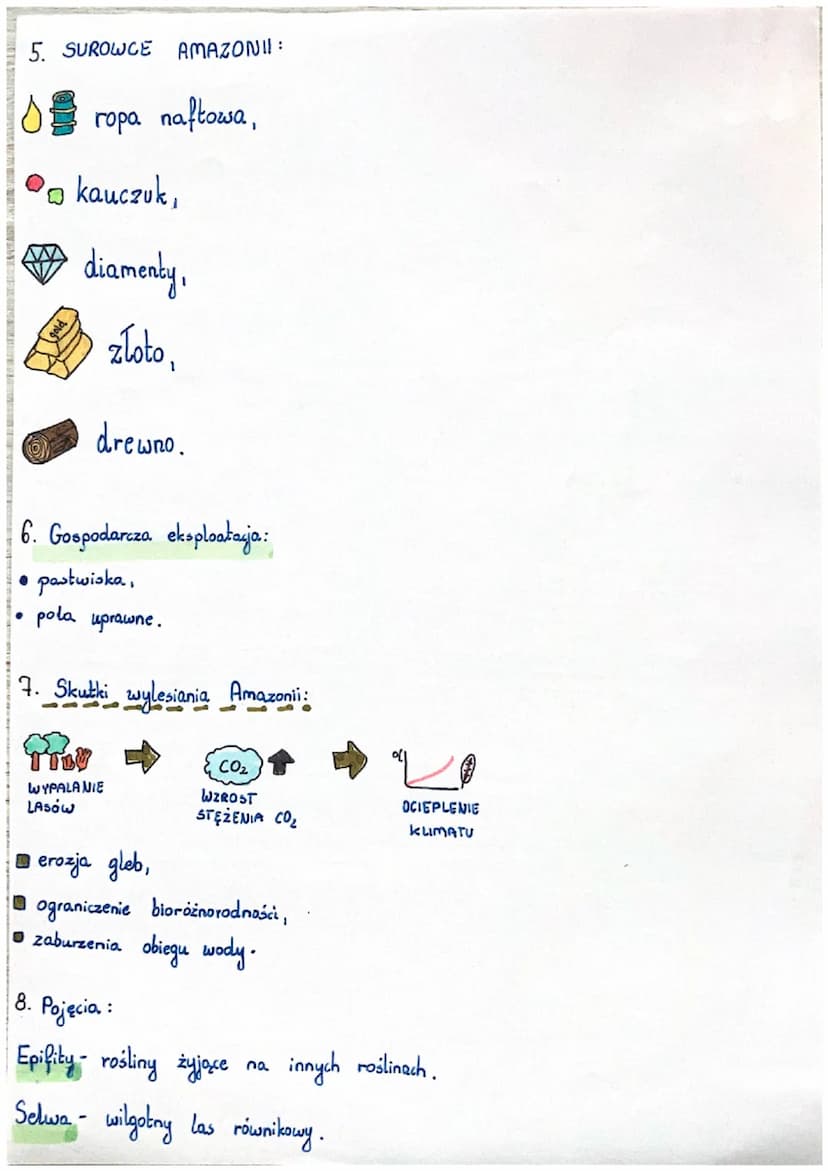 5. SUROWCE AMAZONII:
ropa naftowa,
kauczuk,
diamenty,
gold
złoto,
drewno.
6. Gospodarcza eksploatacja:
• pastwiska,
• pola uprawne.
7. Skutki wylesiania Amazonii:
CO₂
WYPALANIE LASÓW
WZROST STĘŻENIA CO₂
OCIEPLENIE KLIMATU
erozja gleb,
ograniczenie bioróżnorodności,
zaburzenia obiegu wody.
8. Pojęcia:
Epifity - rośliny żyjące na innych roślinach.
Selwa - wilgotny las równikowy.